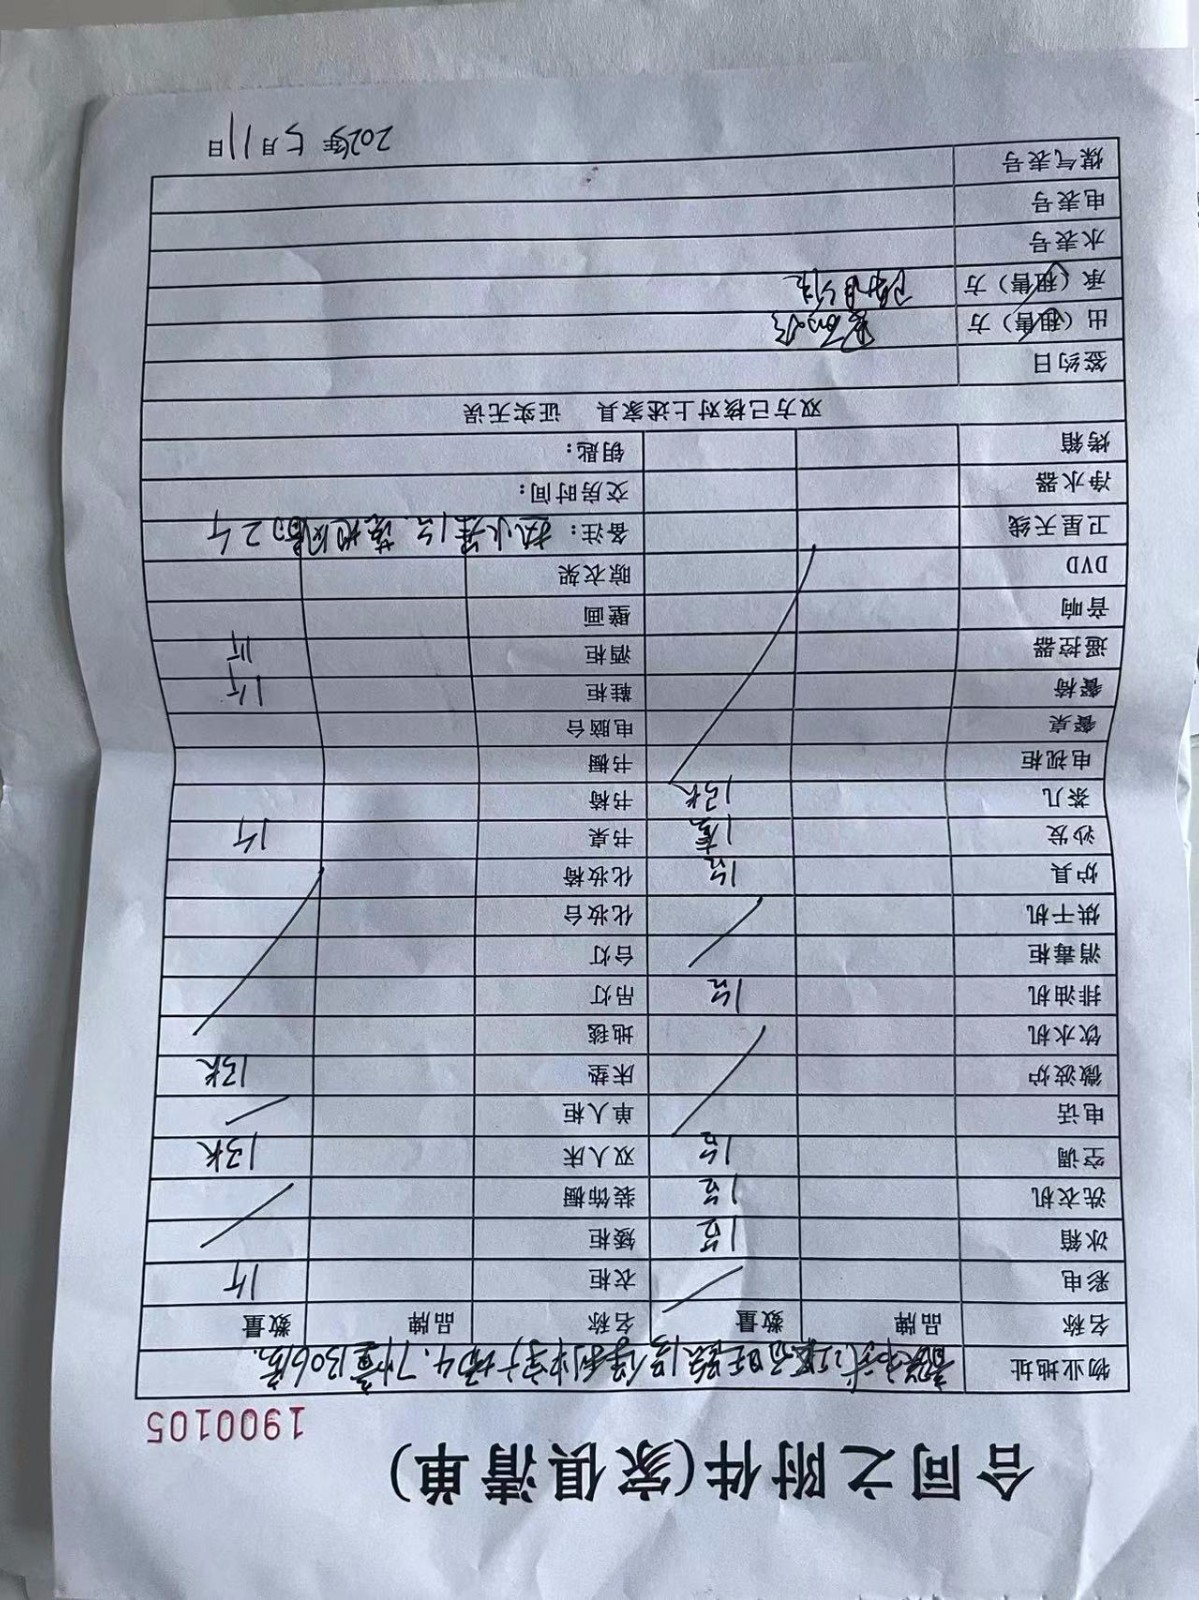 合同之附件(家俱清单)
1900105
物业地址 4.7幢1306房.
名称 品牌 数量 名称 品牌 数量
彩电 衣柜 1个
冰箱 1台 矮柜
洗衣机 1台 装饰橱
空调 1台 双人床 1张
电话 单人柜
微波炉 床垫 1张
饮水机 地毯
排油机 1台 吊灯
消毒柜 台灯
烘干机 化妆台
炉具 1台 化妆椅
沙发 1套 书桌 1个
茶几 1张 书椅
电视柜 书橱
餐桌 电脑台
餐椅 鞋柜 1个
遥控器 酒柜 1个
音响 壁画
DVD 晾衣架
卫星天线 备注：热水器1台, 落地风扇 2个
净水器 交房时间：
烤箱 钥匙：
双方已核对上述家具 证实无误
签约日
出（租售）方
承（租售）方
水表号
电表号
煤气表号
2025年5月11日